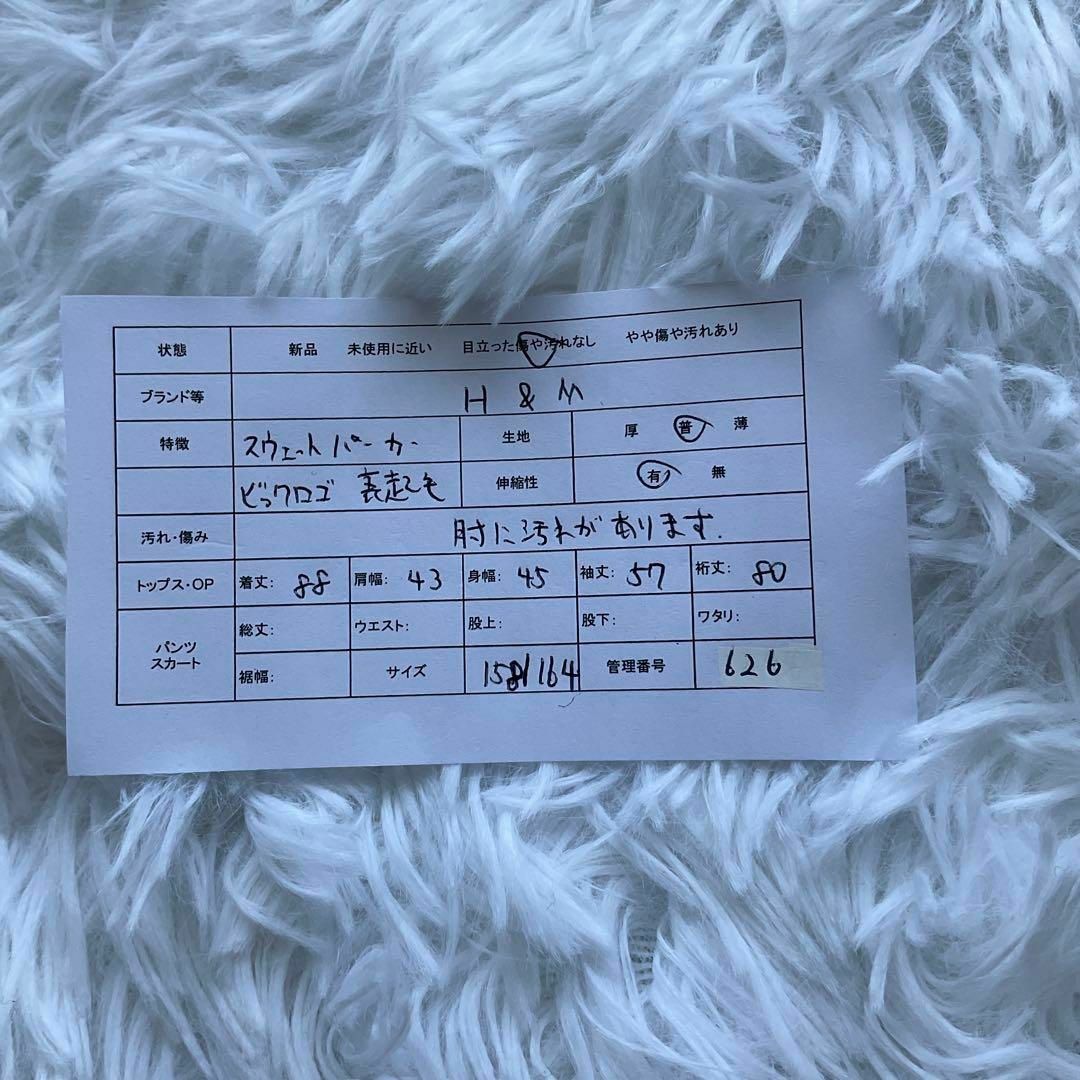 状態 新品 未使用に近い 目立った傷や汚れなし やや傷や汚れあり
ブランド等 H & M
特徴 スウェットパーカー 生地 厚 普 薄
ビックロゴ 裏起毛 伸縮性 有 無
汚れ・傷み 肘に汚れがあります.
トップス・OP 着丈: 88 肩幅: 43 身幅: 45 袖丈: 57 裄丈: 80
パンツ スカート 総丈: ウエスト: 股上: 股下: ワタリ:
裾幅: サイズ 158/164 管理番号 626